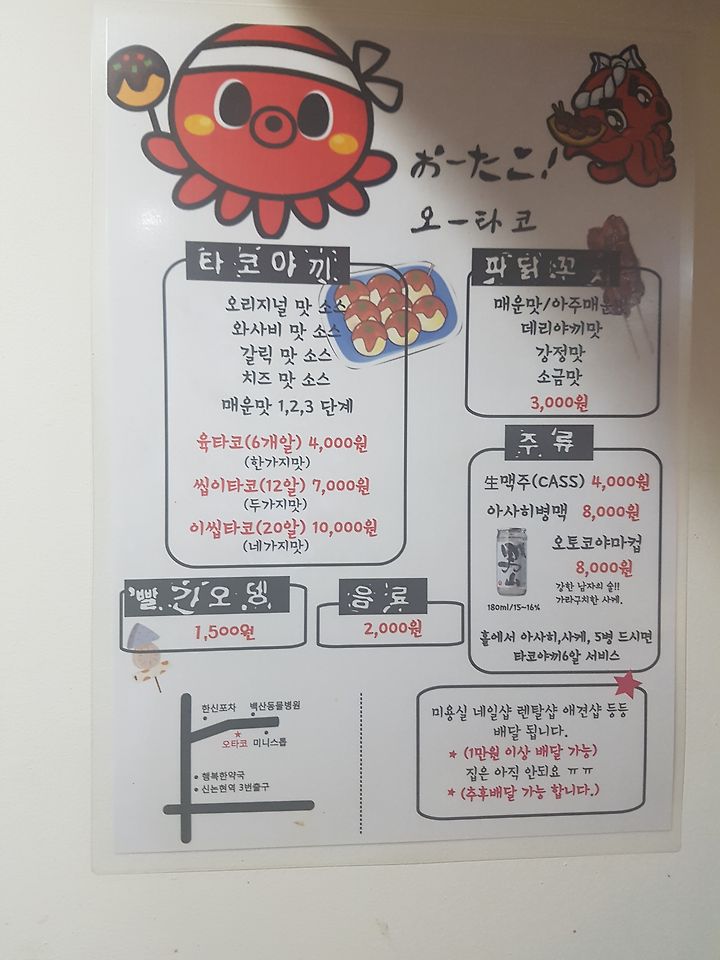 おーたこ!
오-타코
타코야끼
오리지널 맛 소스
와사비 맛 소스
갈릭 맛 소스
치즈 맛 소스
매운맛 1,2,3 단계
육타코(6개알) 4,000원
(한가지맛)
씹이타코(12알) 7,000원
(두가지맛)
이씹타코(20알) 10,000원
(네가지맛)
파닭꼬치
매운맛/아주매운맛
데리야끼맛
강정맛
소금맛
3,000원
주류
生맥주(CASS) 4,000원
아사히병맥 8,000원
오토코야마컵
8,000원
男山
강한 남자의 술!!
가라구치한 사케.
180ml/15~16%
홀에서 아사히,사케, 5병 드시면
타코야끼6알 서비스
빨간오뎅
1,500원
음료
2,000원
한신포차 백산동물병원
오타코 미니스톱
행복한약국
신논현역 3번출구
미용실 네일샵 렌탈샵 애견샵 등등
배달 됩니다.
★ (1만원 이상 배달 가능)
집은 아직 안되요 ㅠㅠ
★ (추후배달 가능 합니다.)